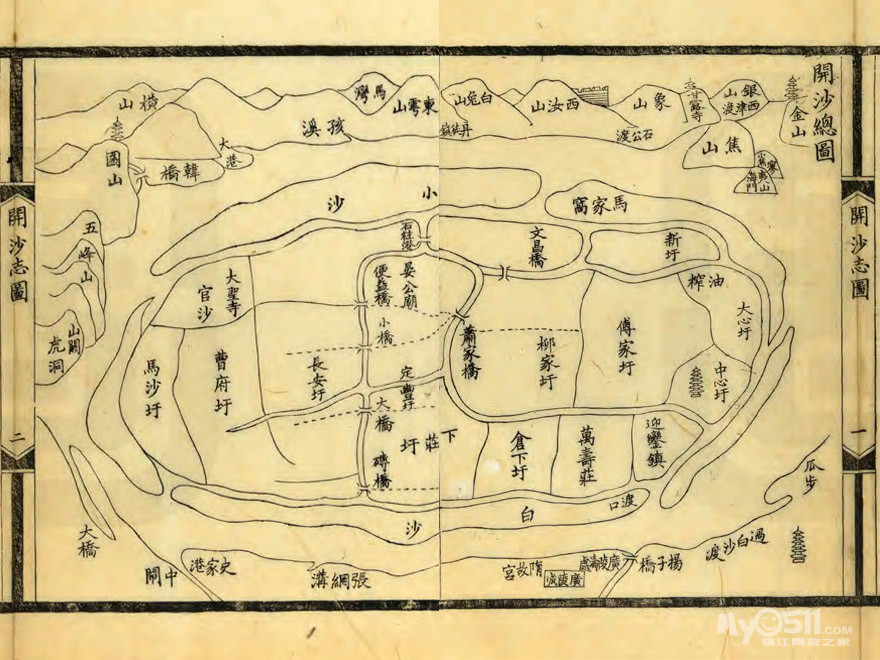 開沙總圖
開沙志圖
一
銀山
西津渡
金山
甘露寺
象山
焦山
海門
石公渡
西汝山
白兔山
丹徒鎮
東霄山
馬鞍
孩溪
大港
橫山
韓橋
圌山
五峰山
山關
虎洞
開沙志圖
二
小沙
馬家窩
新圩
文昌橋
石柱港
油榨
大心圩
中心圩
傅家圩
柳家圩
蕭家橋
晏公廟
便益橋
小橋
定豐圩
大橋
磚橋
大聖寺
官沙
長安圩
曹府圩
馬沙圩
迎鑾鎮
萬壽莊
倉下圩
下莊圩
渡口
白沙
瓜步
過白沙渡
揚子橋
廣陵濤處
廣陵城
隋故宮
張網溝
史家港
中閘
大橋
My0511.COM
鎮江網友之家